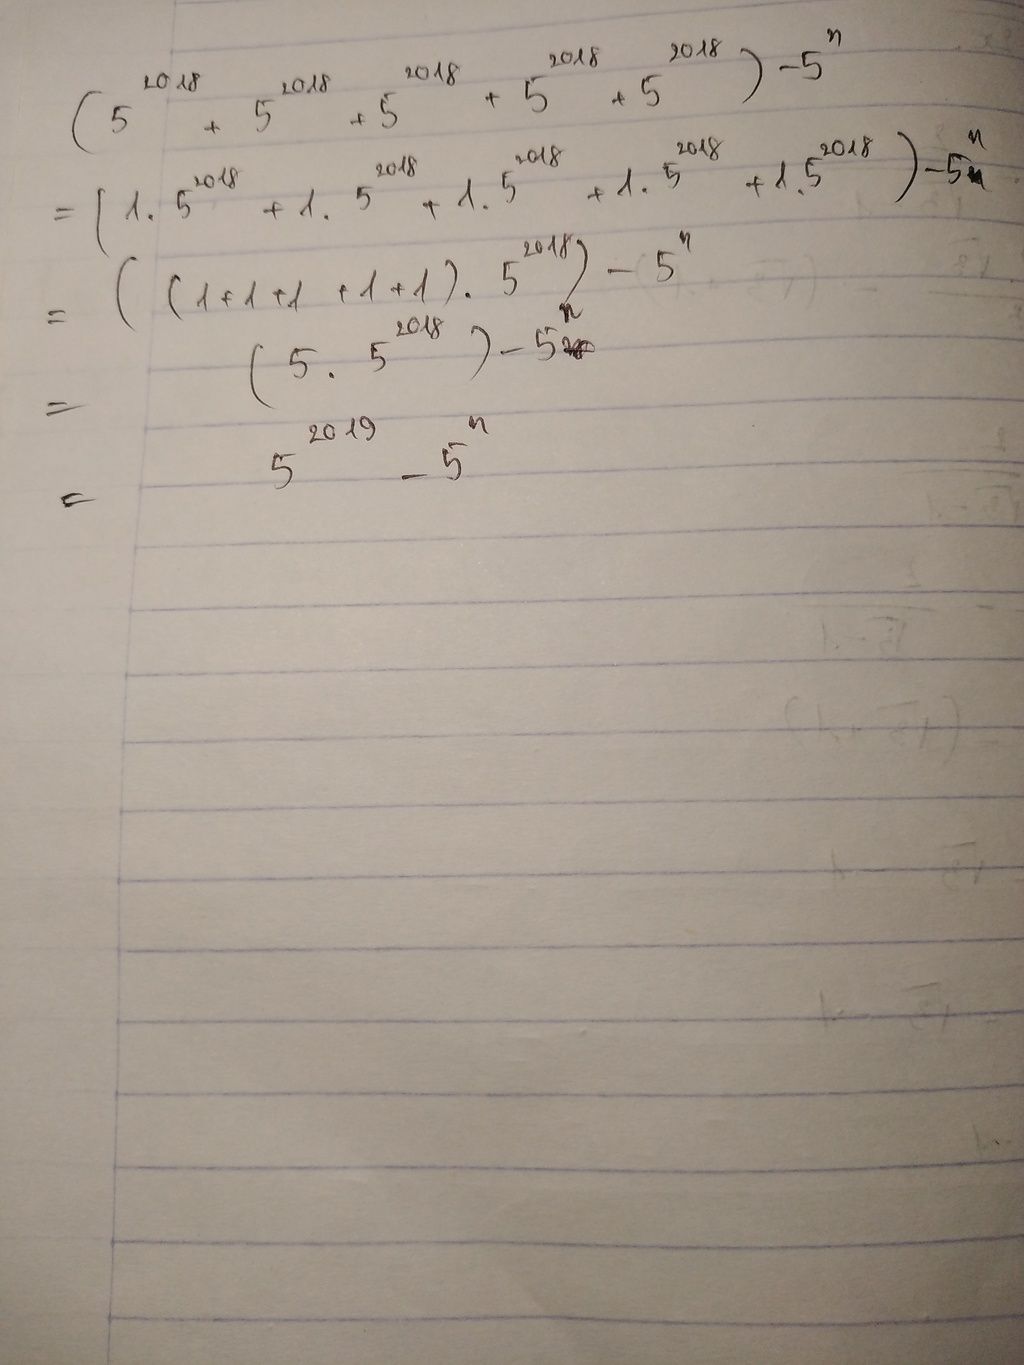 (5^2018 + 5^2018 + 5^2018 + 5^2018 + 5^2018) - 5^n
= (1. 5^2018 + 1. 5^2018 + 1. 5^2018 + 1. 5^2018 + 1. 5^2018) - 5^n
= ((1+1+1+1+1). 5^2018) - 5^n
= (5. 5^2018) - 5^n
= 5^2019 - 5^n